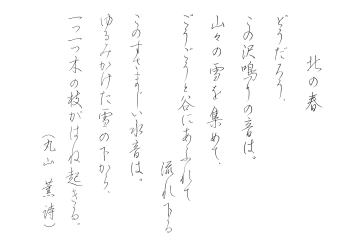 北の春
どうだろう、
この沢鳴りの音は。
山々の雪を集めて、
ごうごうと谷にあふれて
流れ下る
このすさまじい水音は。
ゆるみかけた雪の下から、
一つ一つ木の枝がはね起きる。
（丸山 薫 詩）